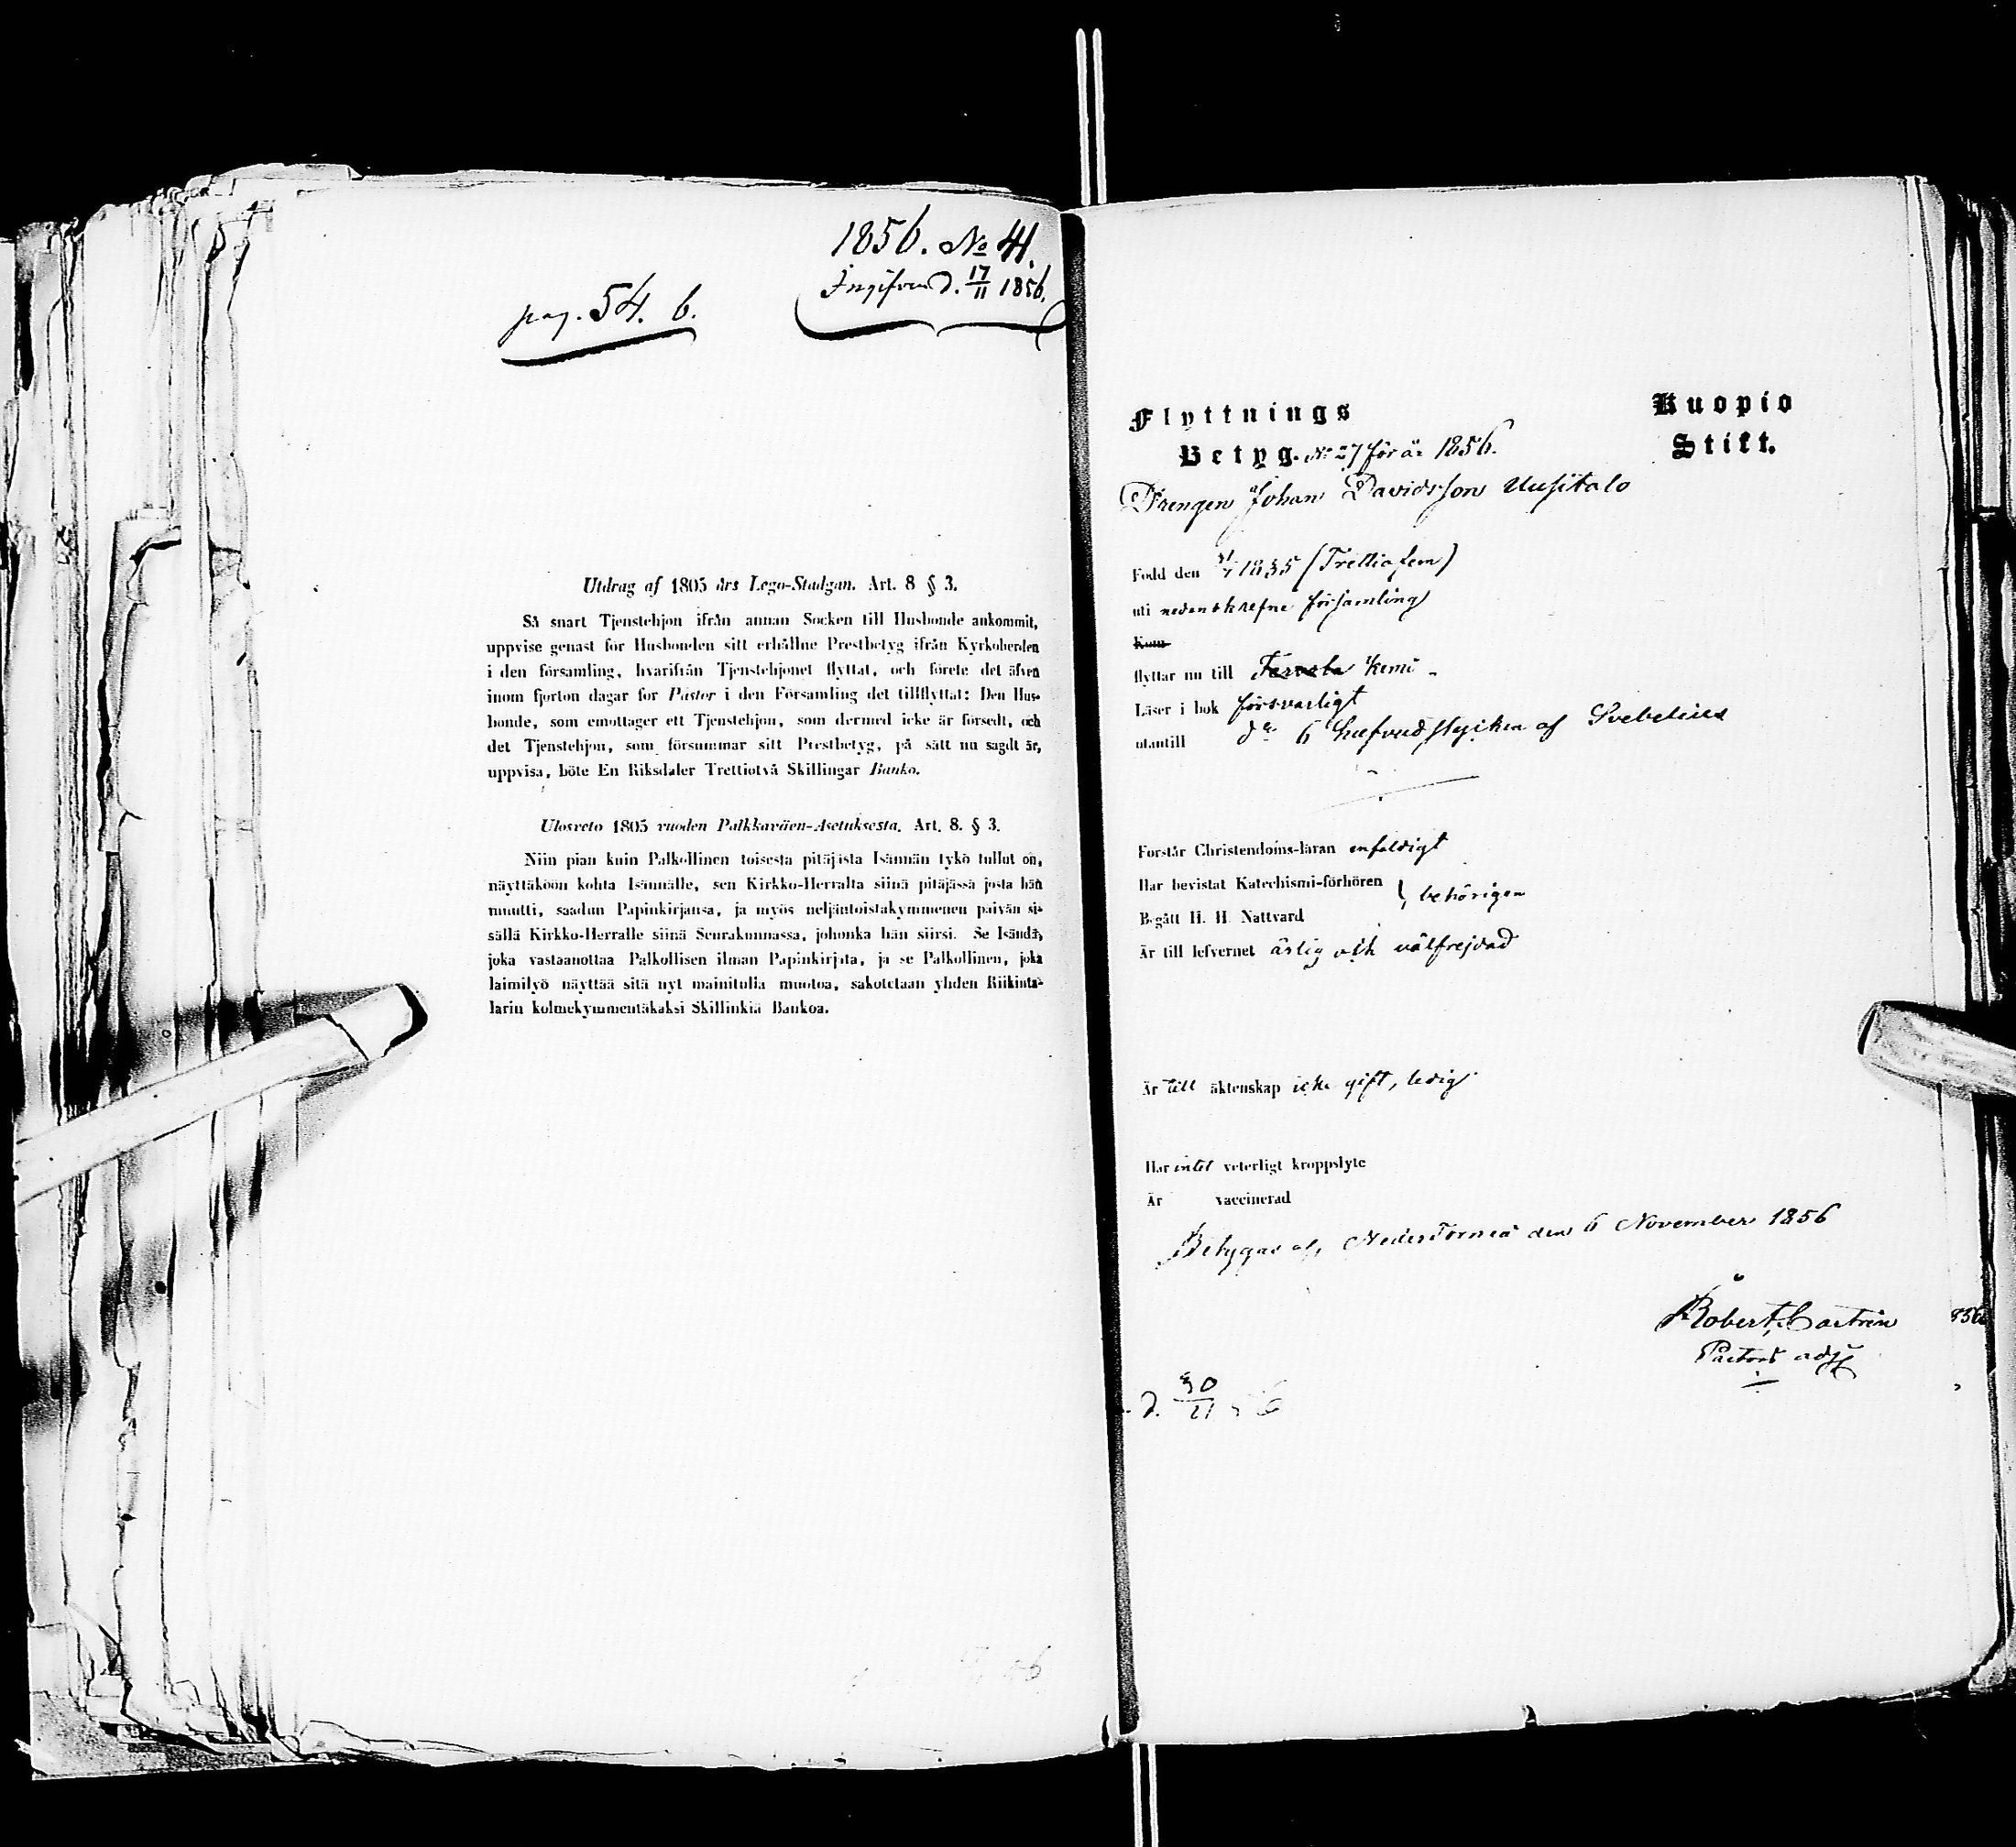 1856. No 41.
Ingifven d. 17/11 1856.
pag. 54. b.
Utdrag af 1805 års Lego-Stadgan. Art. 8 § 3.
Så snart Tjenstehjon ifrån annan Socken till Husbonde ankommit,
uppvise genast för Husbonden sitt erhållne Prestbetyg ifrån Kyrkoherden
i den församling, hvarifrån Tjenstehjonet flyttat, och förete det äfven
inom fjorton dagar for Pastor i den Församling det tillflyttat: Den Hus-
bonde, som emottager ett Tjenstehjon, som dermed icke är försedt, och
det Tjenstehjon, som försummar sitt Prestbetyg, på sätt nu sagdt är,
uppvisa, böte En Riksdaler Trettiotvå Skillingar Banko.
Ulosveto 1805 vuoden Palkkaväen-Asetuksesta. Art. 8. § 3.
Niin pian kuin Palkollinen toisesta pitäjästa Isännän tykö tullut on,
näyttäköön kohta Isännälle, sen Kirkko-Herralta siinä pitäjässä josta hän
muutti, saadun Papinkirjansa, ja myös neljäntoistakymmenen päivän si-
sällä Kirkko-Herralle siinä Seurakunnassa, johonka hän siirsi. Se Isändä,
joka vastaanottaa Palkollisen ilman Papinkirjata, ja se Palkollinen, joka
laimilyö näyttää sitä nyt mainitulla muotoa, sakotetaan yhden Riikinta-
larin kolmekymmentäkaksi Skillinkiä Bankoa.
Flyttnings
Betyg. No 27 för år 1856.
Kuopio
Stift.
Drengen Johan Davidsson Uusitalo
Född den 1835 (Trettiofem)
uti nedanskrefne församling
Kom
flyttar nu till Kemi
Läser i bok försvarligt
utantill do 6 hufvudstycken af Svebelius
Forstår Christendoms-läran enfaldigt
Har bevistat Katechismi-förhören } behörigen
Begått H. H. Nattvard
Är till lefvernet ärlig och välfrejdad
Är till äktenskap icke gift, ledig
Har intet veterligt kroppslyte
Är vaccinerad
Betygas af, NederTorneå den 6 November 1856
Robert Castrén
Pastors adj
d. 30/11 56